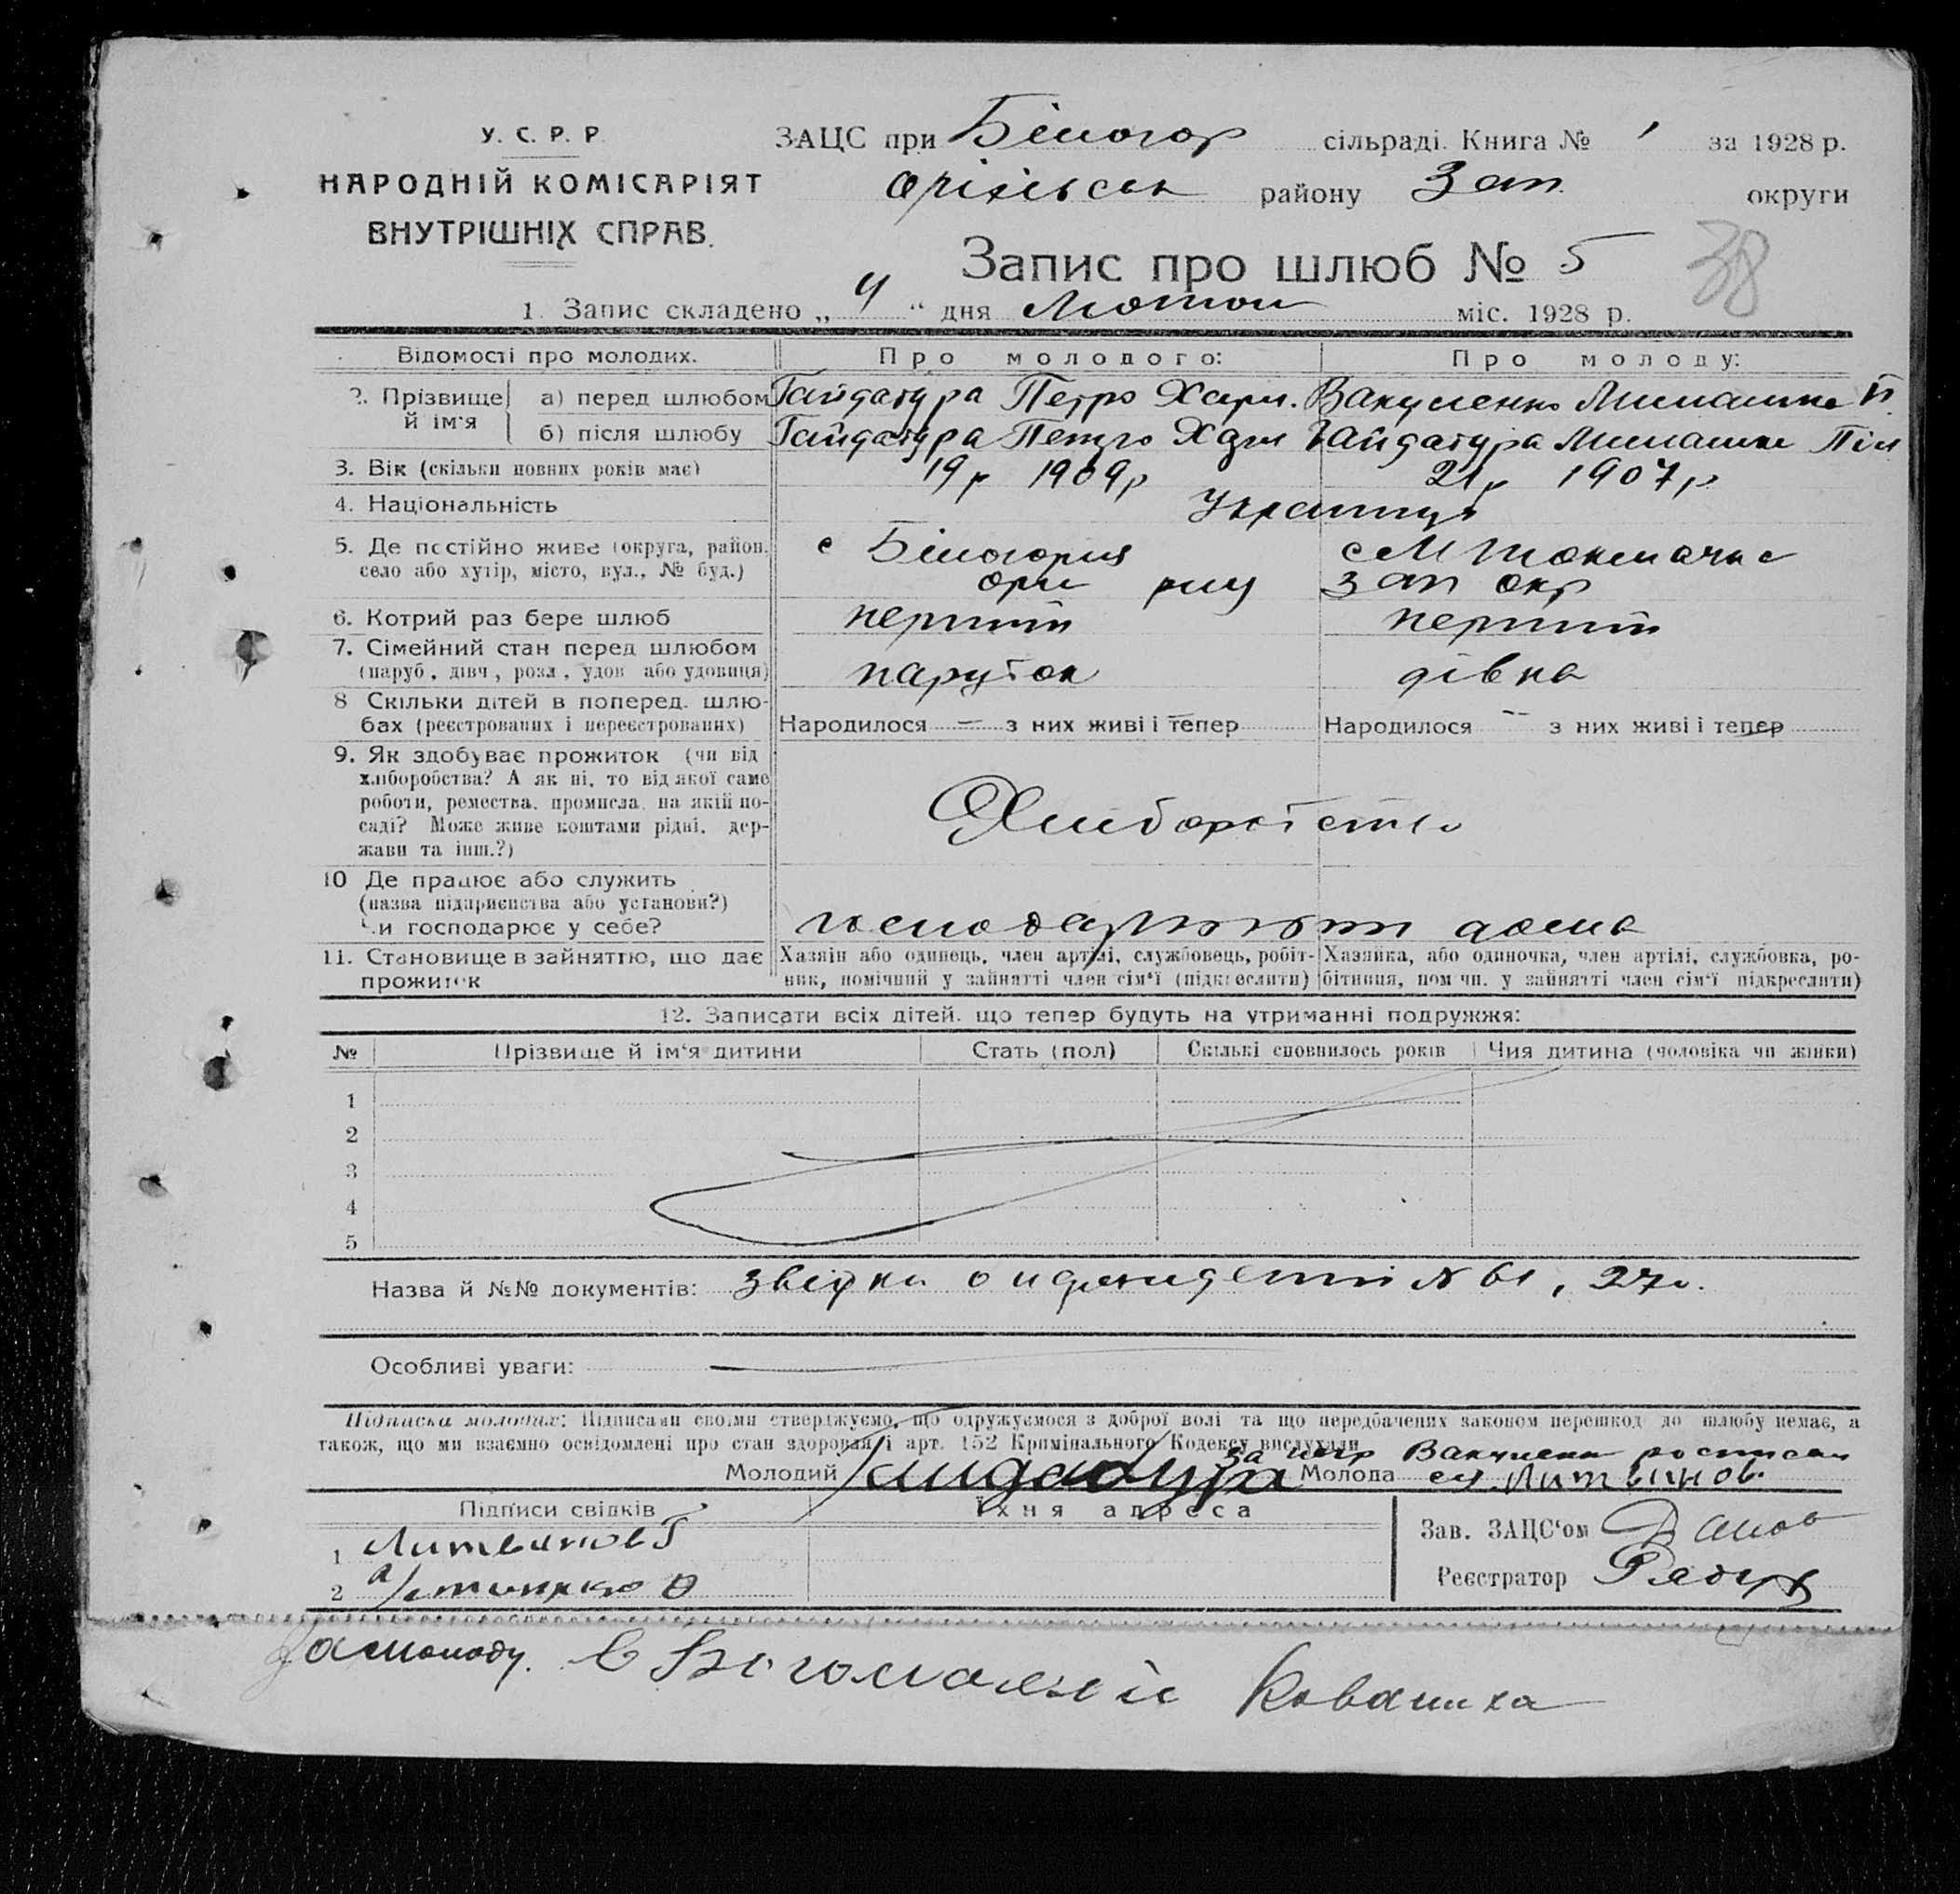 У. С. Р. Р.
НАРОДНІЙ КОМІСАРІЯТ
ВНУТРІШНІХ СПРАВ.
ЗАЦС при Білогор сільраді. Книга № 1 за 1928 р.
Оріхівськ району Зап. округи
Запис про шлюб № 5
38
1. Запис складено „4“ дня Лютого міс. 1928 р.
Відомості про молодих. Про молодого: Про молоду:
2. Прізвище й ім'я
а) перед шлюбом Гайдатура Петро Харл. Вакуленко П.
б) після шлюбу Гайдатура Петро Хар Гайдатура Пил
3. Вік (скільки повних років має) 19 р 1909 р 21 р 1907 р
4. Національність Українці
5. Де постійно живе (округа, район, с Білогория с М Токмачка
село або хутір, місто, вул., № буд.) оріх рну зап окр
6. Котрий раз бере шлюб перший перший
7. Сімейний стан перед шлюбом
(паруб., дівч., розл., удов. або удовиця) парубок дівка
8 Скільки дітей в поперед. шлю-
бах (реєстрованих і нереєстрованих) Народилося — з них живі і тепер Народилося — з них живі і тепер
9. Як здобуває прожиток (чи від
хліборобства? А як ні, то від якої саме
роботи, ремества, промисла, на якій по-
саді? Може живе коштами рідні, дер-
жави та інш.?)
Хліборобство
10 Де працює або служить
(назва підприємства або установи?)
Чи господарює у себе? господарюють дома
11. Становище в зайняттю, що дає прожиток
Хазяін або одинець, член артілі, службовець, робіт-
ник, помічний у зайнятті член сім'ї (підкреслити)
Хазяйка, або одиночка, член артілі, службовка, ро-
бітниця, пом чн. у зайнятті член сім'ї підкреслити)
12. Записати всіх дітей, що тепер будуть на утриманні подружжя:
№ Прізвище й ім'я дитини Стать (пол) Скількі сповнилось років Чия дитина (чоловіка чи жінки)
1
2
3
4
5
Назва й №№ документів: звідки о N 61, 27
Особливі уваги:
Підписка молодих: Підписами своїми стверджуємо, що одружуємося з доброї волі та що передбачених законом перешкод до шлюбу немає, а
також, що ми взаємно освідомлені про стан здоровля і арт. 152 Кримінального Кодексу вислухали
за негр Вакуленко росписал
Молодий Гайдатура Молода Литвинов.
Підписи свідків Їхня адреса
1 Литвинов Г
2
Зав. ЗАЦС'ом
Реєстратор
За молоду. Ковалиха